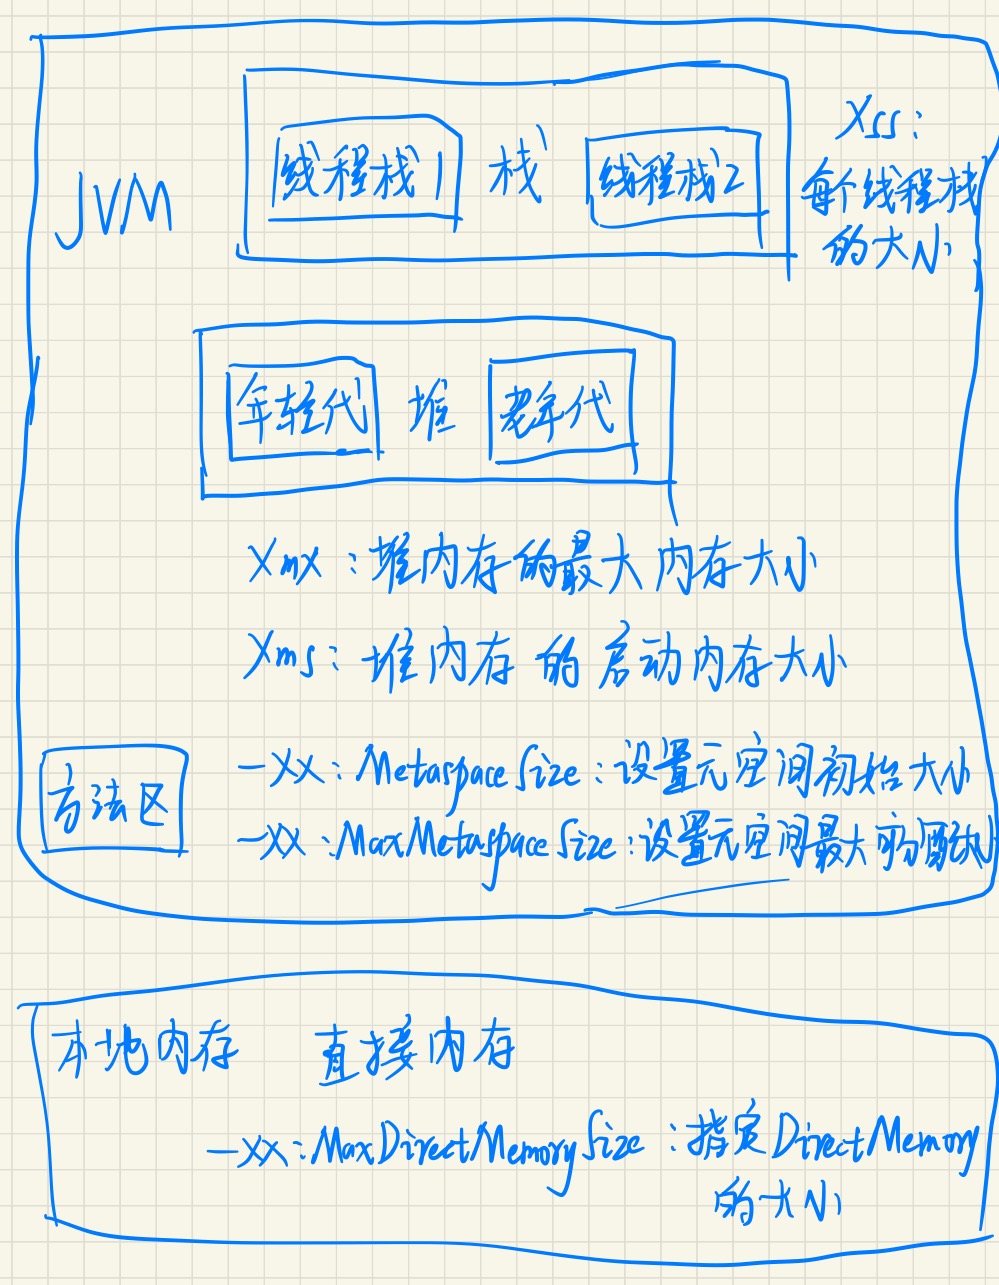 JVM
线程栈1 栈 线程栈2
Xss:
每个线程栈
的大小
年轻代 堆 老年代
Xmx:堆内存的最大内存大小
Xms:堆内存的启动内存大小
方法区
-XX:MetaspaceSize:设置元空间初始大小
-XX:MaxMetaspaceSize:设置元空间最大可分配大小
本地内存 直接内存
-XX:MaxDirectMemorySize:指定DirectMemory
的大小